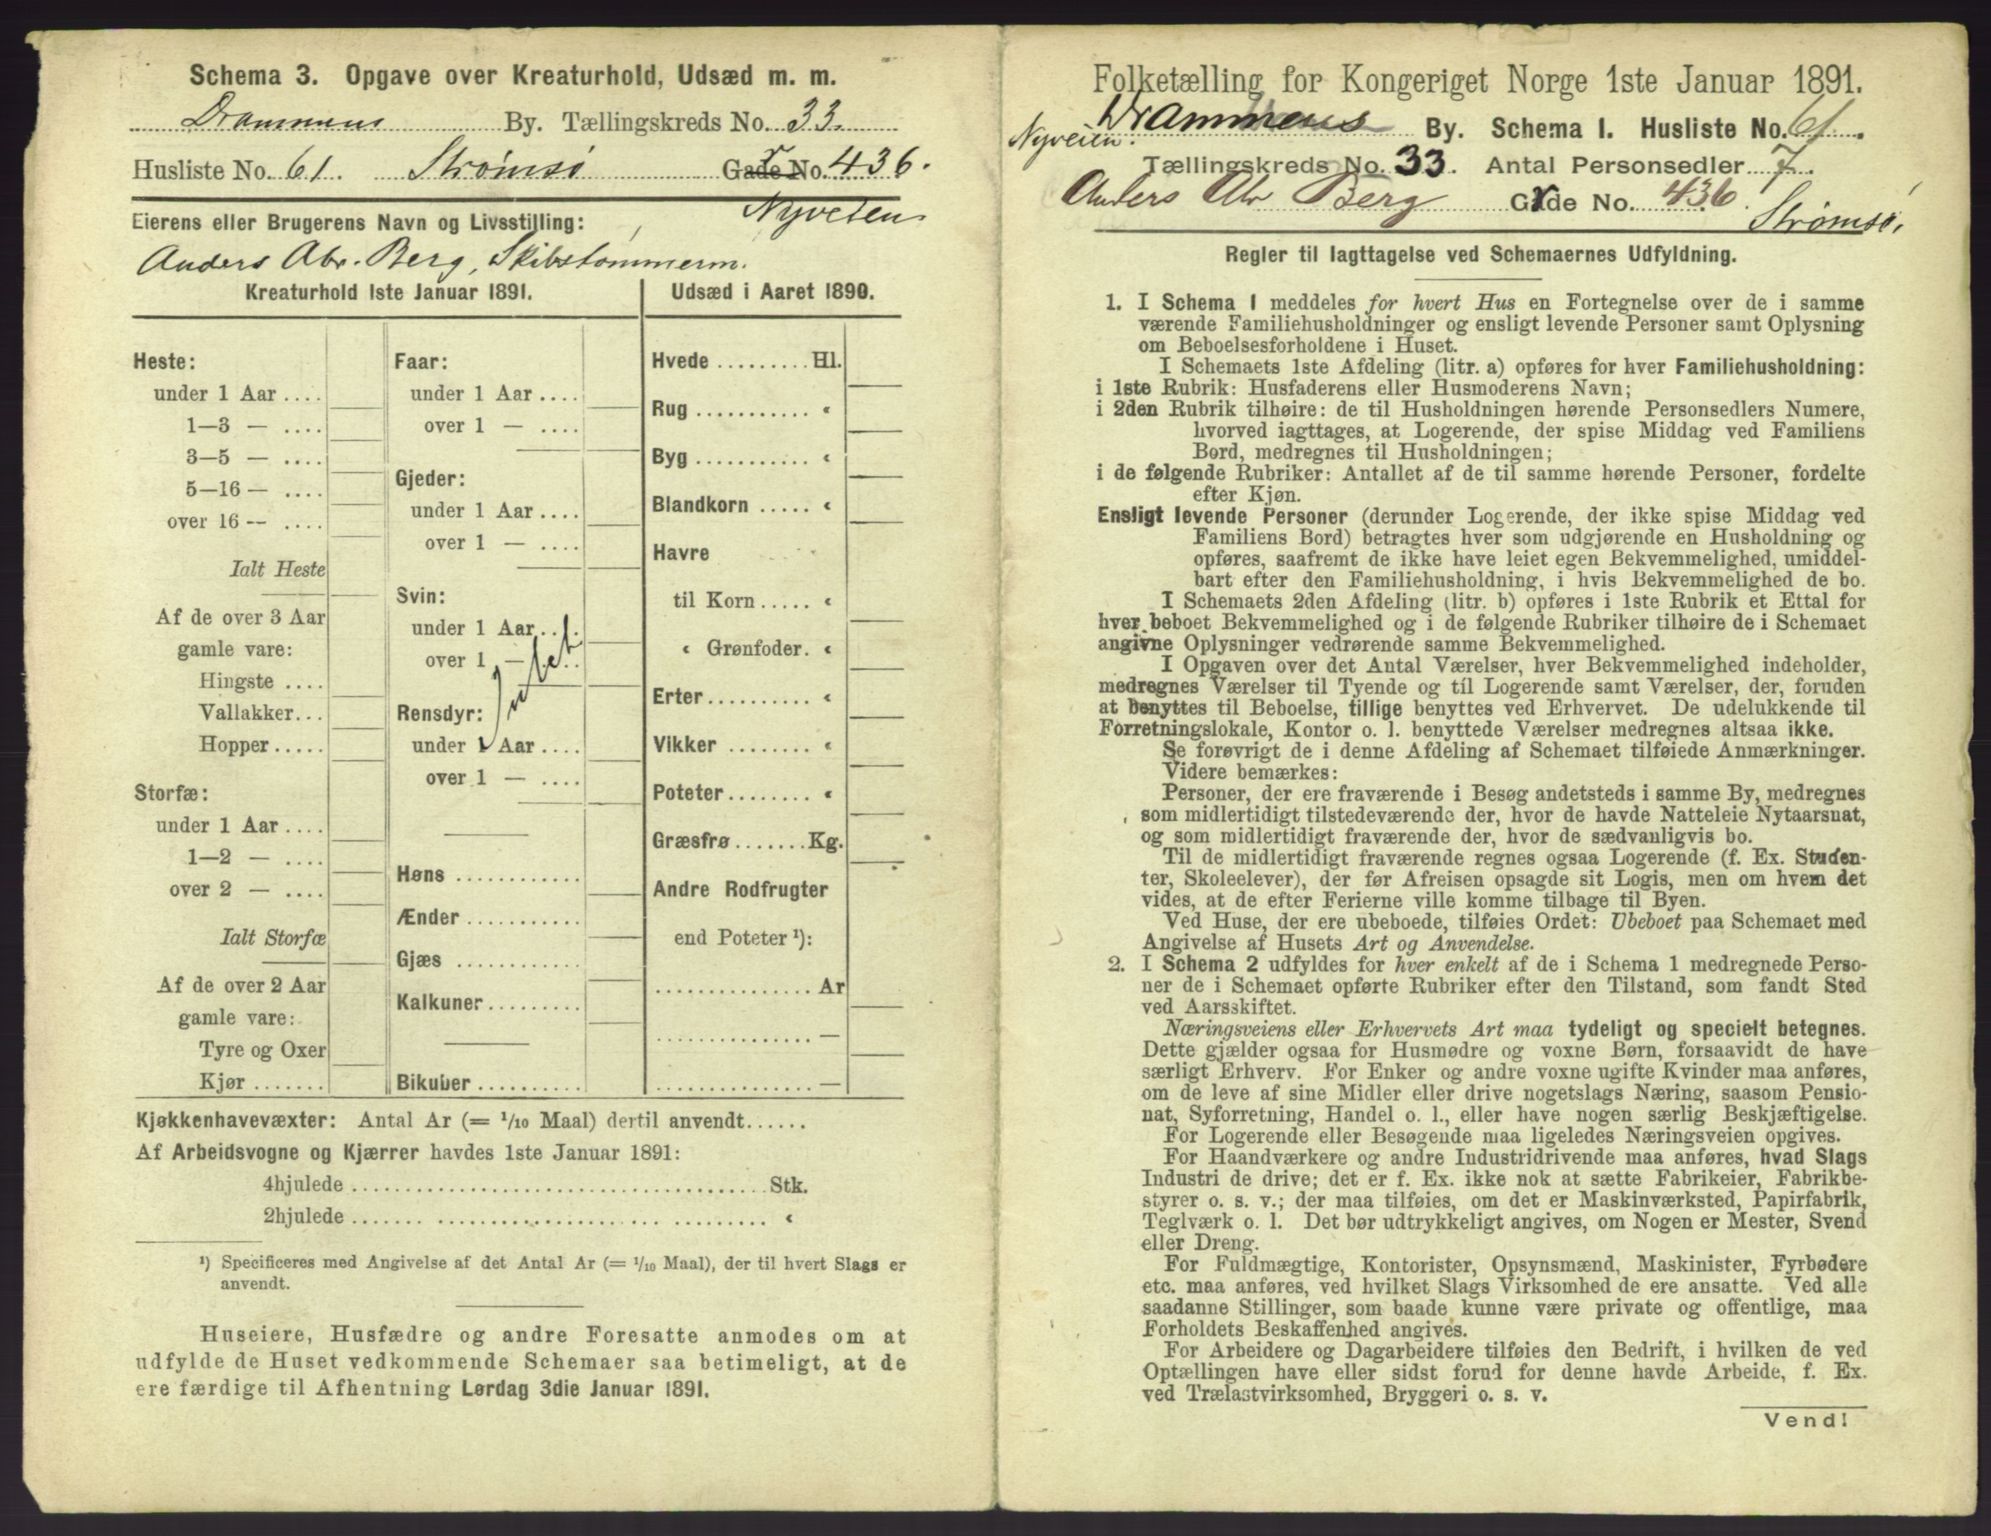 Schema 3. Opgave over Kreaturhold, Udsæd m. m.
Drammens By. Tællingskreds No. 33.
Husliste No. 61. Strømsø Gade No. 436.
Nyveien
Eierens eller Brugerens Navn og Livsstilling:
Anders Abr. Berg, Skibstømmerm.
Kreaturhold 1ste Januar 1891.
Heste:
under 1 Aar ....
1—3 — ....
3—5 — ....
5—16 — ....
over 16 — ....
Ialt Heste
Af de over 3 Aar
gamle vare:
Hingste ....
Vallakker...
Hopper.....
Storfæ:
under 1 Aar ....
1—2 — ....
over 2 — ....
Ialt Storfæ
Af de over 2 Aar
gamle vare:
Tyre og Oxer
Kjør .......
Faar:
under 1 Aar ....
over 1 — ....
Gjeder:
under 1 Aar ....
over 1 — ....
Svin:
under 1 Aar ....
over 1 — ....
Intet
Rensdyr:
under 1 Aar ....
over 1 — ....
Høns ............
Ænder ...........
Gjæs ............
Kalkuner.........
Bikuber ..........
Udsæd i Aaret 1890.
Hvede ......... Hl.
Rug ........... «
Byg ........... «
Blandkorn ..... «
Havre
til Korn ..... «
« Grønfoder. «
Erter .......... «
Vikker ......... «
Poteter ........ «
Græsfrø ....... Kg.
Andre Rodfrugter
end Poteter ¹):
............... Ar
............... —
............... —
Kjøkkenhavevæxter: Antal Ar (= 1/10 Maal) dertil anvendt......
Af Arbeidsvogne og Kjærrer havdes 1ste Januar 1891:
4hjulede ........................................ Stk.
2hjulede ........................................ «
¹) Specificeres med Angivelse af det Antal Ar (= 1/10 Maal), der til hvert Slags er
anvendt.
Huseiere, Husfædre og andre Foresatte anmodes om at
udfylde de Huset vedkommende Schemaer saa betimeligt, at de
ere færdige til Afhentning Lørdag 3die Januar 1891.
Folketælling for Kongeriget Norge 1ste Januar 1891.
Drammens By. Schema 1. Husliste No. 61.
Nyveien.
Tællingskreds No. 33. Antal Personsedler 7.
Anders Abr Berg Gade No. 436.
Strømsø,
Regler til Iagttagelse ved Schemaernes Udfyldning.
1. I Schema 1 meddeles for hvert Hus en Fortegnelse over de i samme
værende Familiehusholdninger og ensligt levende Personer samt Oplysning
om Beboelsesforholdene i Huset.
I Schemaets 1ste Afdeling (litr. a) opføres for hver Familiehusholdning:
i 1ste Rubrik: Husfaderens eller Husmoderens Navn;
i 2den Rubrik tilhøire: de til Husholdningen hørende Personsedlers Numere,
hvorved iagttages, at Logerende, der spise Middag ved Familiens
Bord, medregnes til Husholdningen;
i de følgende Rubriker: Antallet af de til samme hørende Personer, fordelte
efter Kjøn.
Ensligt levende Personer (derunder Logerende, der ikke spise Middag ved
Familiens Bord) betragtes hver som udgjørende en Husholdning og
opføres, saafremt de ikke have leiet egen Bekvemmelighed, umiddel-
bart efter den Familiehusholdning, i hvis Bekvemmelighed de bo.
I Schemaets 2den Afdeling (litr. b) opføres i 1ste Rubrik et Ettal for
hver beboet Bekvemmelighed og i de følgende Rubriker tilhøire de i Schemaet
angivne Oplysninger vedrørende samme Bekvemmelighed.
I Opgaven over det Antal Værelser, hver Bekvemmelighed indeholder,
medregnes Værelser til Tyende og til Logerende samt Værelser, der, foruden
at benyttes til Beboelse, tillige benyttes ved Erhvervet. De udelukkende til
Forretningslokale, Kontor o. l. benyttede Værelser medregnes altsaa ikke.
Se forøvrigt de i denne Afdeling af Schemaet tilføiede Anmærkninger.
Videre bemærkes:
Personer, der ere fraværende i Besøg andetsteds i samme By, medregnes
som midlertidigt tilstedeværende der, hvor de havde Natteleie Nytaarsnat,
og som midlertidigt fraværende der, hvor de sædvanligvis bo.
Til de midlertidigt fraværende regnes ogsaa Logerende (f. Ex. Studen-
ter, Skoleelever), der før Afreisen opsagde sit Logis, men om hvem det
vides, at de efter Ferierne ville komme tilbage til Byen.
Ved Huse, der ere ubeboede, tilføies Ordet: Ubeboet paa Schemaet med
Angivelse af Husets Art og Anvendelse.
2. I Schema 2 udfyldes for hver enkelt af de i Schema 1 medregnede Perso-
ner de i Schemaet opførte Rubriker efter den Tilstand, som fandt Sted
ved Aarsskiftet.
Næringsveiens eller Erhvervets Art maa tydeligt og specielt betegnes.
Dette gjælder ogsaa for Husmødre og voxne Børn, forsaavidt de have
særligt Erhverv. For Enker og andre voxne ugifte Kvinder maa anføres,
om de leve af sine Midler eller drive nogetslags Næring, saasom Pensio-
nat, Syforretning, Handel o. l., eller have nogen særlig Beskjæftigelse.
For Logerende eller Besøgende maa ligeledes Næringsveien opgives.
For Haandværkere og andre Industridrivende maa anføres, hvad Slags
Industri de drive; det er f. Ex. ikke nok at sætte Fabrikeier, Fabrikbe-
styrer o. s. v.; der maa tilføies, om det er Maskinværksted, Papirfabrik,
Teglværk o. l. Det bør udtrykkeligt angives, om Nogen er Mester, Svend
eller Dreng.
For Fuldmægtige, Kontorister, Opsynsmænd, Maskinister, Fyrbødere
etc. maa anføres, ved hvilket Slags Virksomhed de ere ansatte. Ved alle
saadanne Stillinger, som baade kunne være private og offentlige, maa
Forholdets Beskaffenhed angives.
For Arbeidere og Dagarbeidere tilføies den Bedrift, i hvilken de ved
Optællingen have eller sidst forud for denne havde Arbeide, f. Ex.
ved Trælastvirksomhed, Bryggeri o. s. v.
Vend!